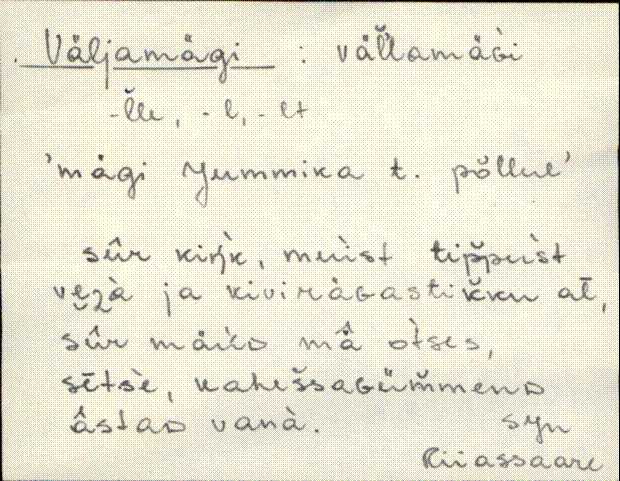 Väljamägi : väl̆l̆amäGi
-l̆le, -l, -lt
'mägi Jummika t. põllul'
sûr kiŋ̀k, muist tip̆puist
veᴢà ja kiviràGastik̆ku al̄,
sûr mäiᴅ mâ òtses,
sētsè, kaheš̆saGüm̆menᴅ
âstaᴅ vanà.
syn
Riiassaare